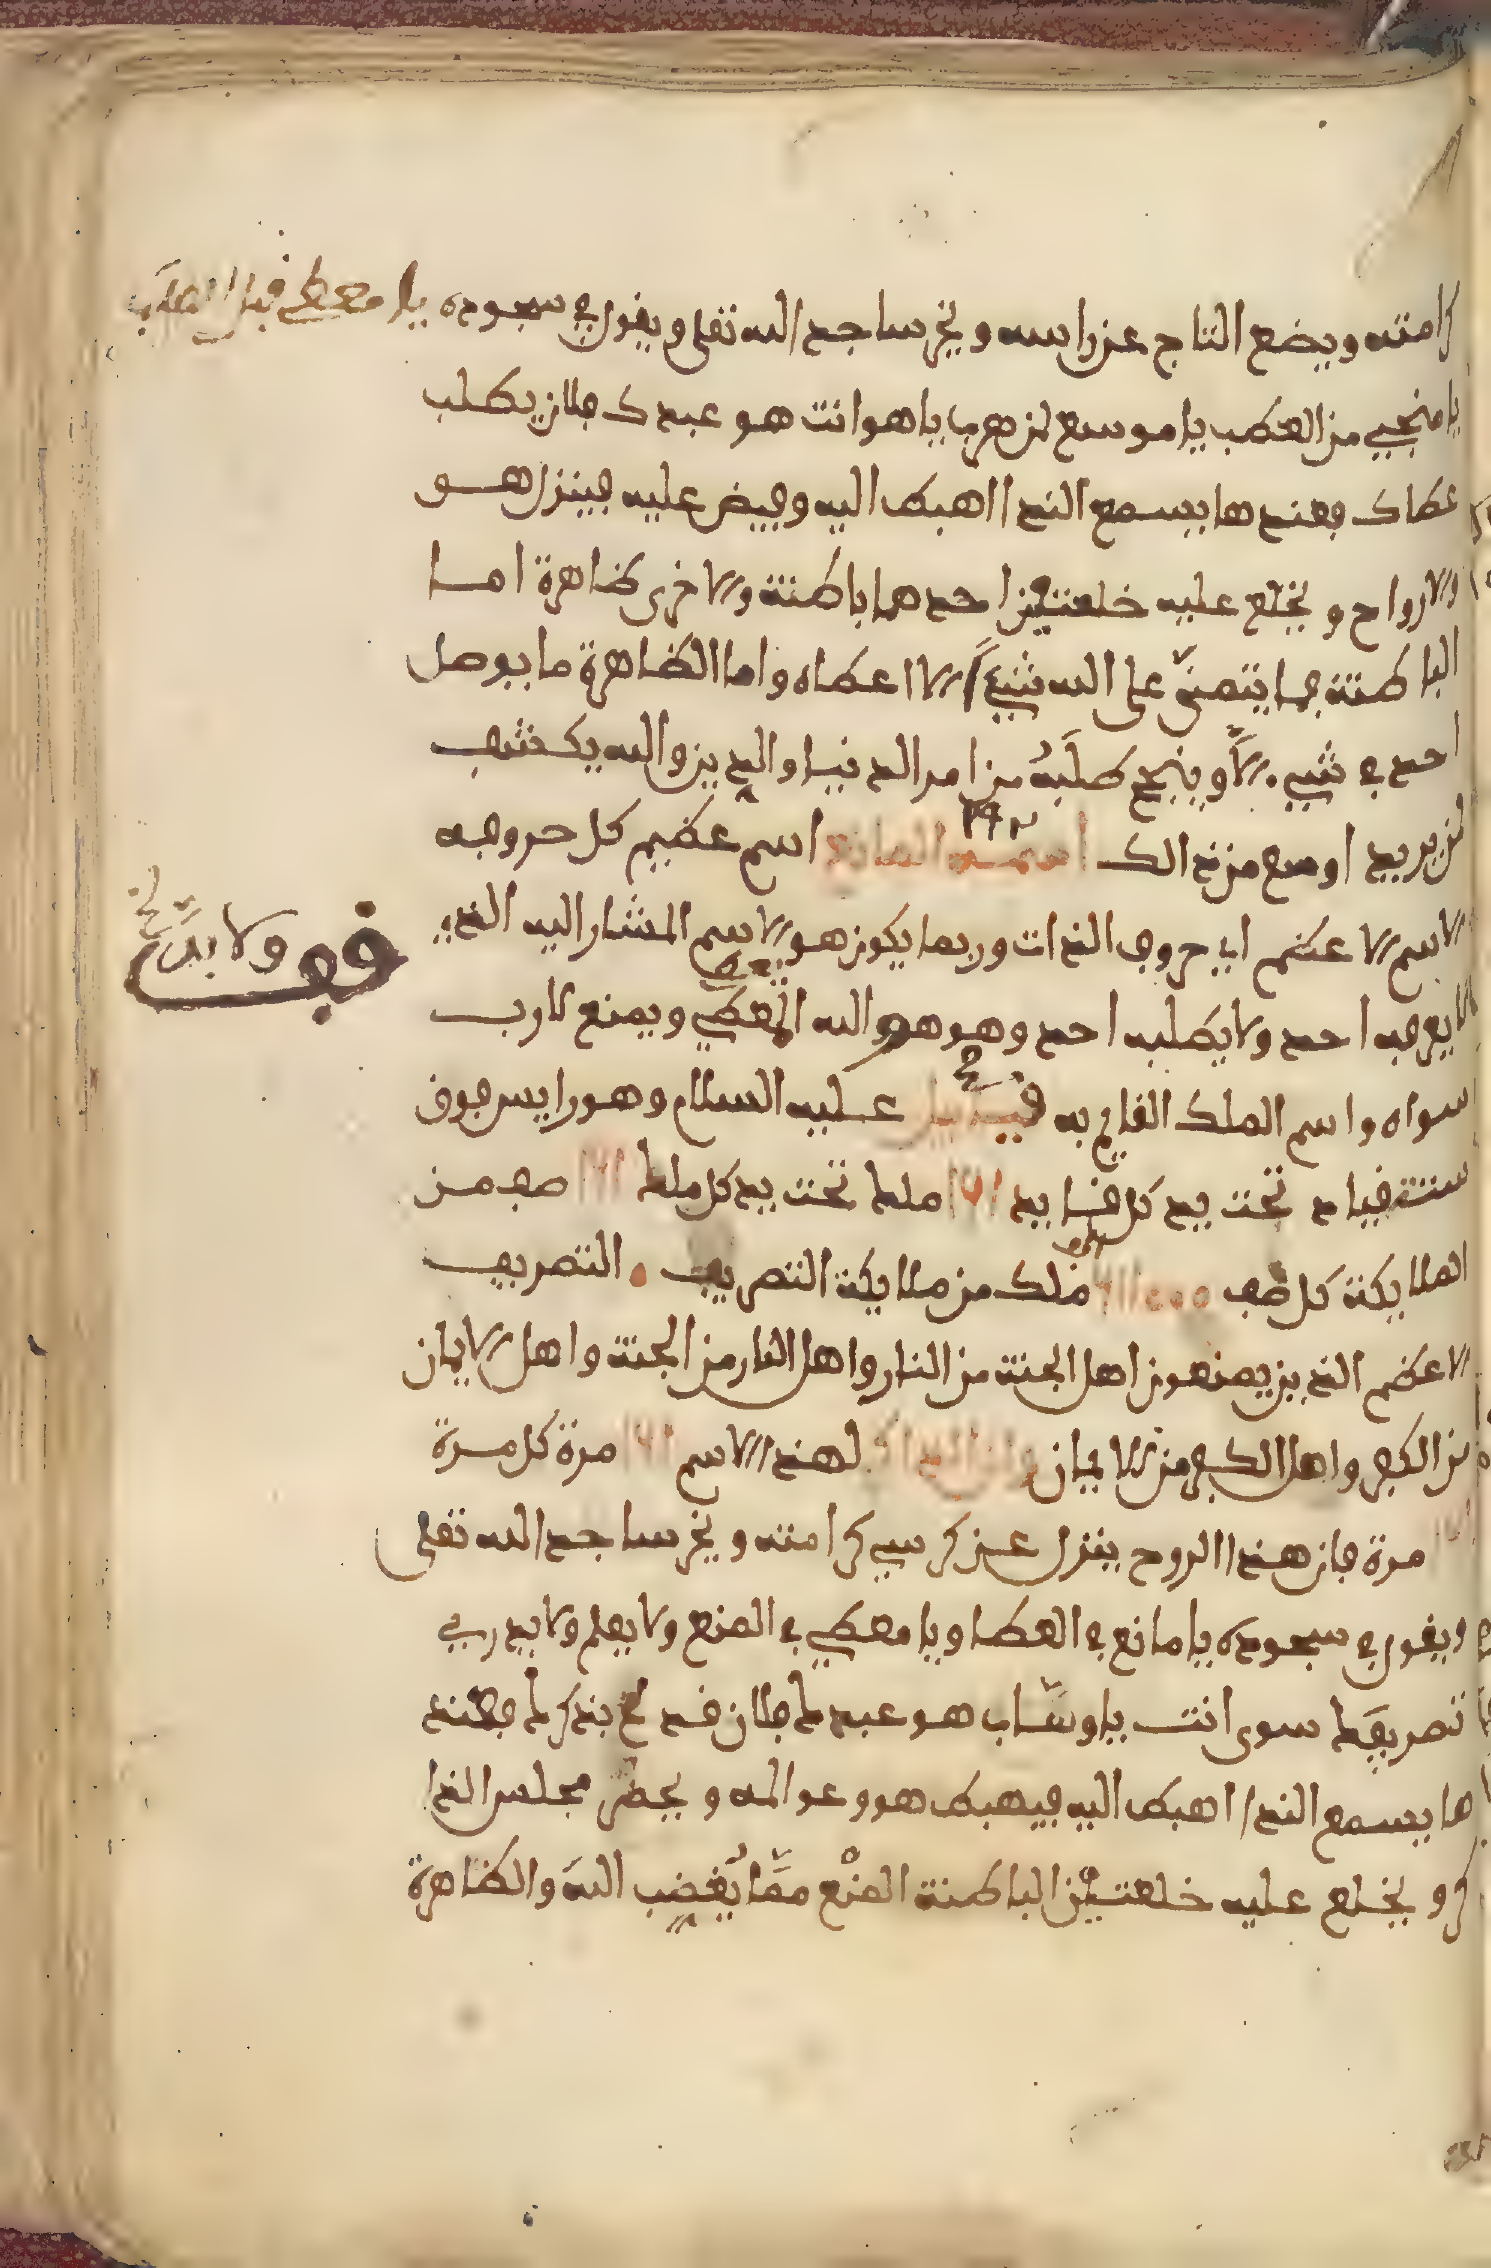 كرامته ويضع التاج عن راسه ويخر ساجد الله تعلى ويقول في سجوده يا معطي قبل الطلب
يا منجي من العطب يا موسع لمن هرب يا هو انت هو عبدك فلان يطلب
عطاك فعندها يسمع الندا اهبط اليه وفيض عليه فينزل هو
والارواح ويخلع عليه خلعتين احدهما باطنة والاخرى ظاهرة اما
الباطنة فما يتمنى على الله شيئا الا اعطاه واما الظاهرة ما يوصل
احد في شيء الا وينجح طلبه من امر الدنيا والدين والله يكشف
لمن يريد اوسع من ذالك اسمه المانع ١٩٢ اسم عظيم كل حروفه
الاسم الاعظم اي حروف الذات وربما يكون هو الاسم المشار اليه الذي
لا يعرفه احد ولا يطلبه احد وهو هو الله المعطي ويمنع لا رب
فف ولا بد خ
سواه واسم الملك القايم به عليه السلام وهو رايس فوق
ستة قياد تحت يد كل قايد ملط تحت يد كل ملط صف من
الملايكة كل صف ملك من ملايكة التصريف التصريف
الاعظم الذين يمنعون اهل الجنة من النار واهل النار من الجنة واهل الايمان
من الكفر واهل الكفر من الايمان لهذا الاسم مرة كل مرة
مرة فان هذا الروح ينزل عن كرسي كرامته ويخر ساجد الله تعلى
ويقول في سجوده يا مانع في العطا ويا معطي في المنع ولا يعلم ولا يدري
تصريفط سوى انت يا وهاب هو عبدط فلان قد لح بذكرط فعند
ها يسمع الندا اهبط اليه فيهبط هو وعوالمه ويحضر مجلس الذا
كر ويخلع عليه خلعتين الباطنة المنع مما يغضب الله والظاهرة